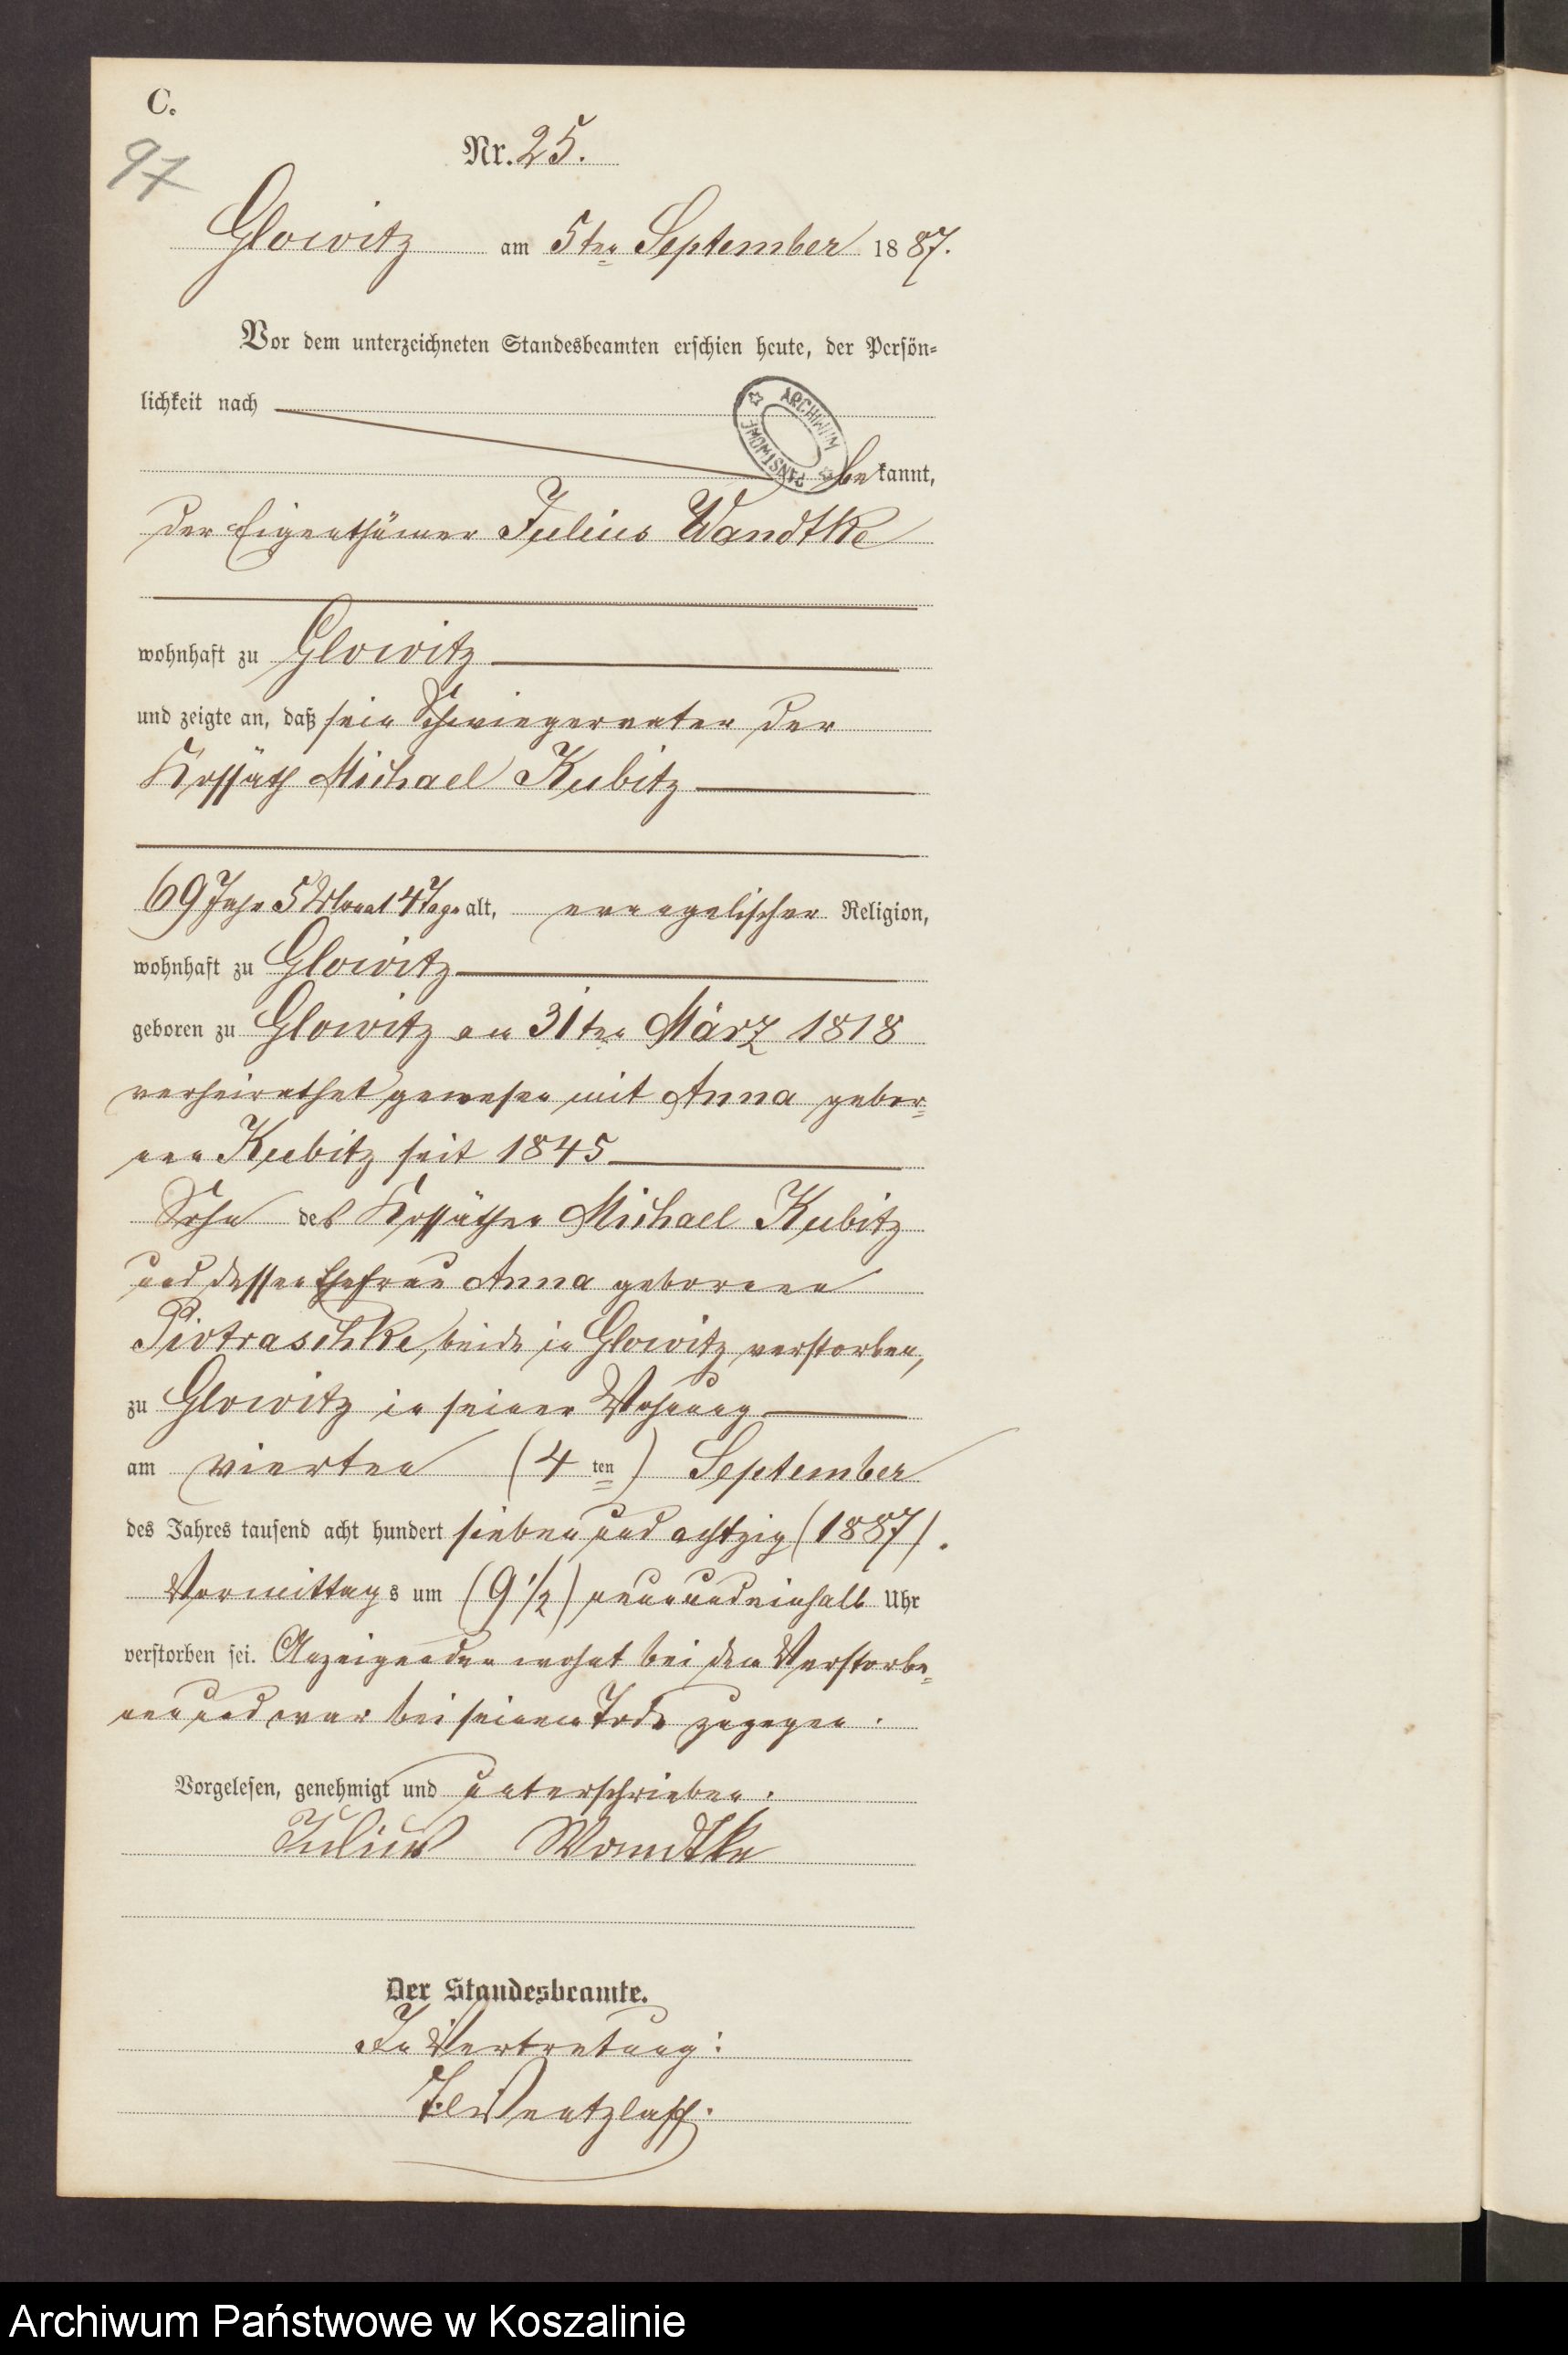 C.
97
Nr. 25.
Glowitz am 5ten September 1887.
Vor dem unterzeichneten Standesbeamten erschien heute, der Persön-
lichkeit nach
ARCHIWUM PAŃSTWOWE
bekannt,
der Eigenthümer Julius Wandtke
wohnhaft zu Glowitz
und zeigte an, daß sein Schwiegervater der
Kossäth Michael Kubitz
69 Jahr 5 Monat 4 Tage alt, evangelischer Religion,
wohnhaft zu Glowitz
geboren zu Glowitz am 31ten März 1818
verheirathet gewesen mit Anna gebor-
nen Kubitz seit 1845
Sohn des Kossäthen Michael Kubitz
und dessen Ehefrau Anna geborenen
Piotraschke, beide in Glowitz verstorben,
zu Glowitz in seiner Wohnung
am vierten (4ten) September
des Jahres tausend acht hundert sieben und achtzig (1887).
Vormittags um (9 1/2) neunundeinhalb Uhr
verstorben sei. Anzeigender wohnt bei dem Verstorbe-
nen und war bei seinem Tode zugegen.
Vorgelesen, genehmigt und unterschrieben.
Julius Wandtke
Der Standesbeamte.
In Vertretung:
Wentzlaff.
Archiwum Państwowe w Koszalinie